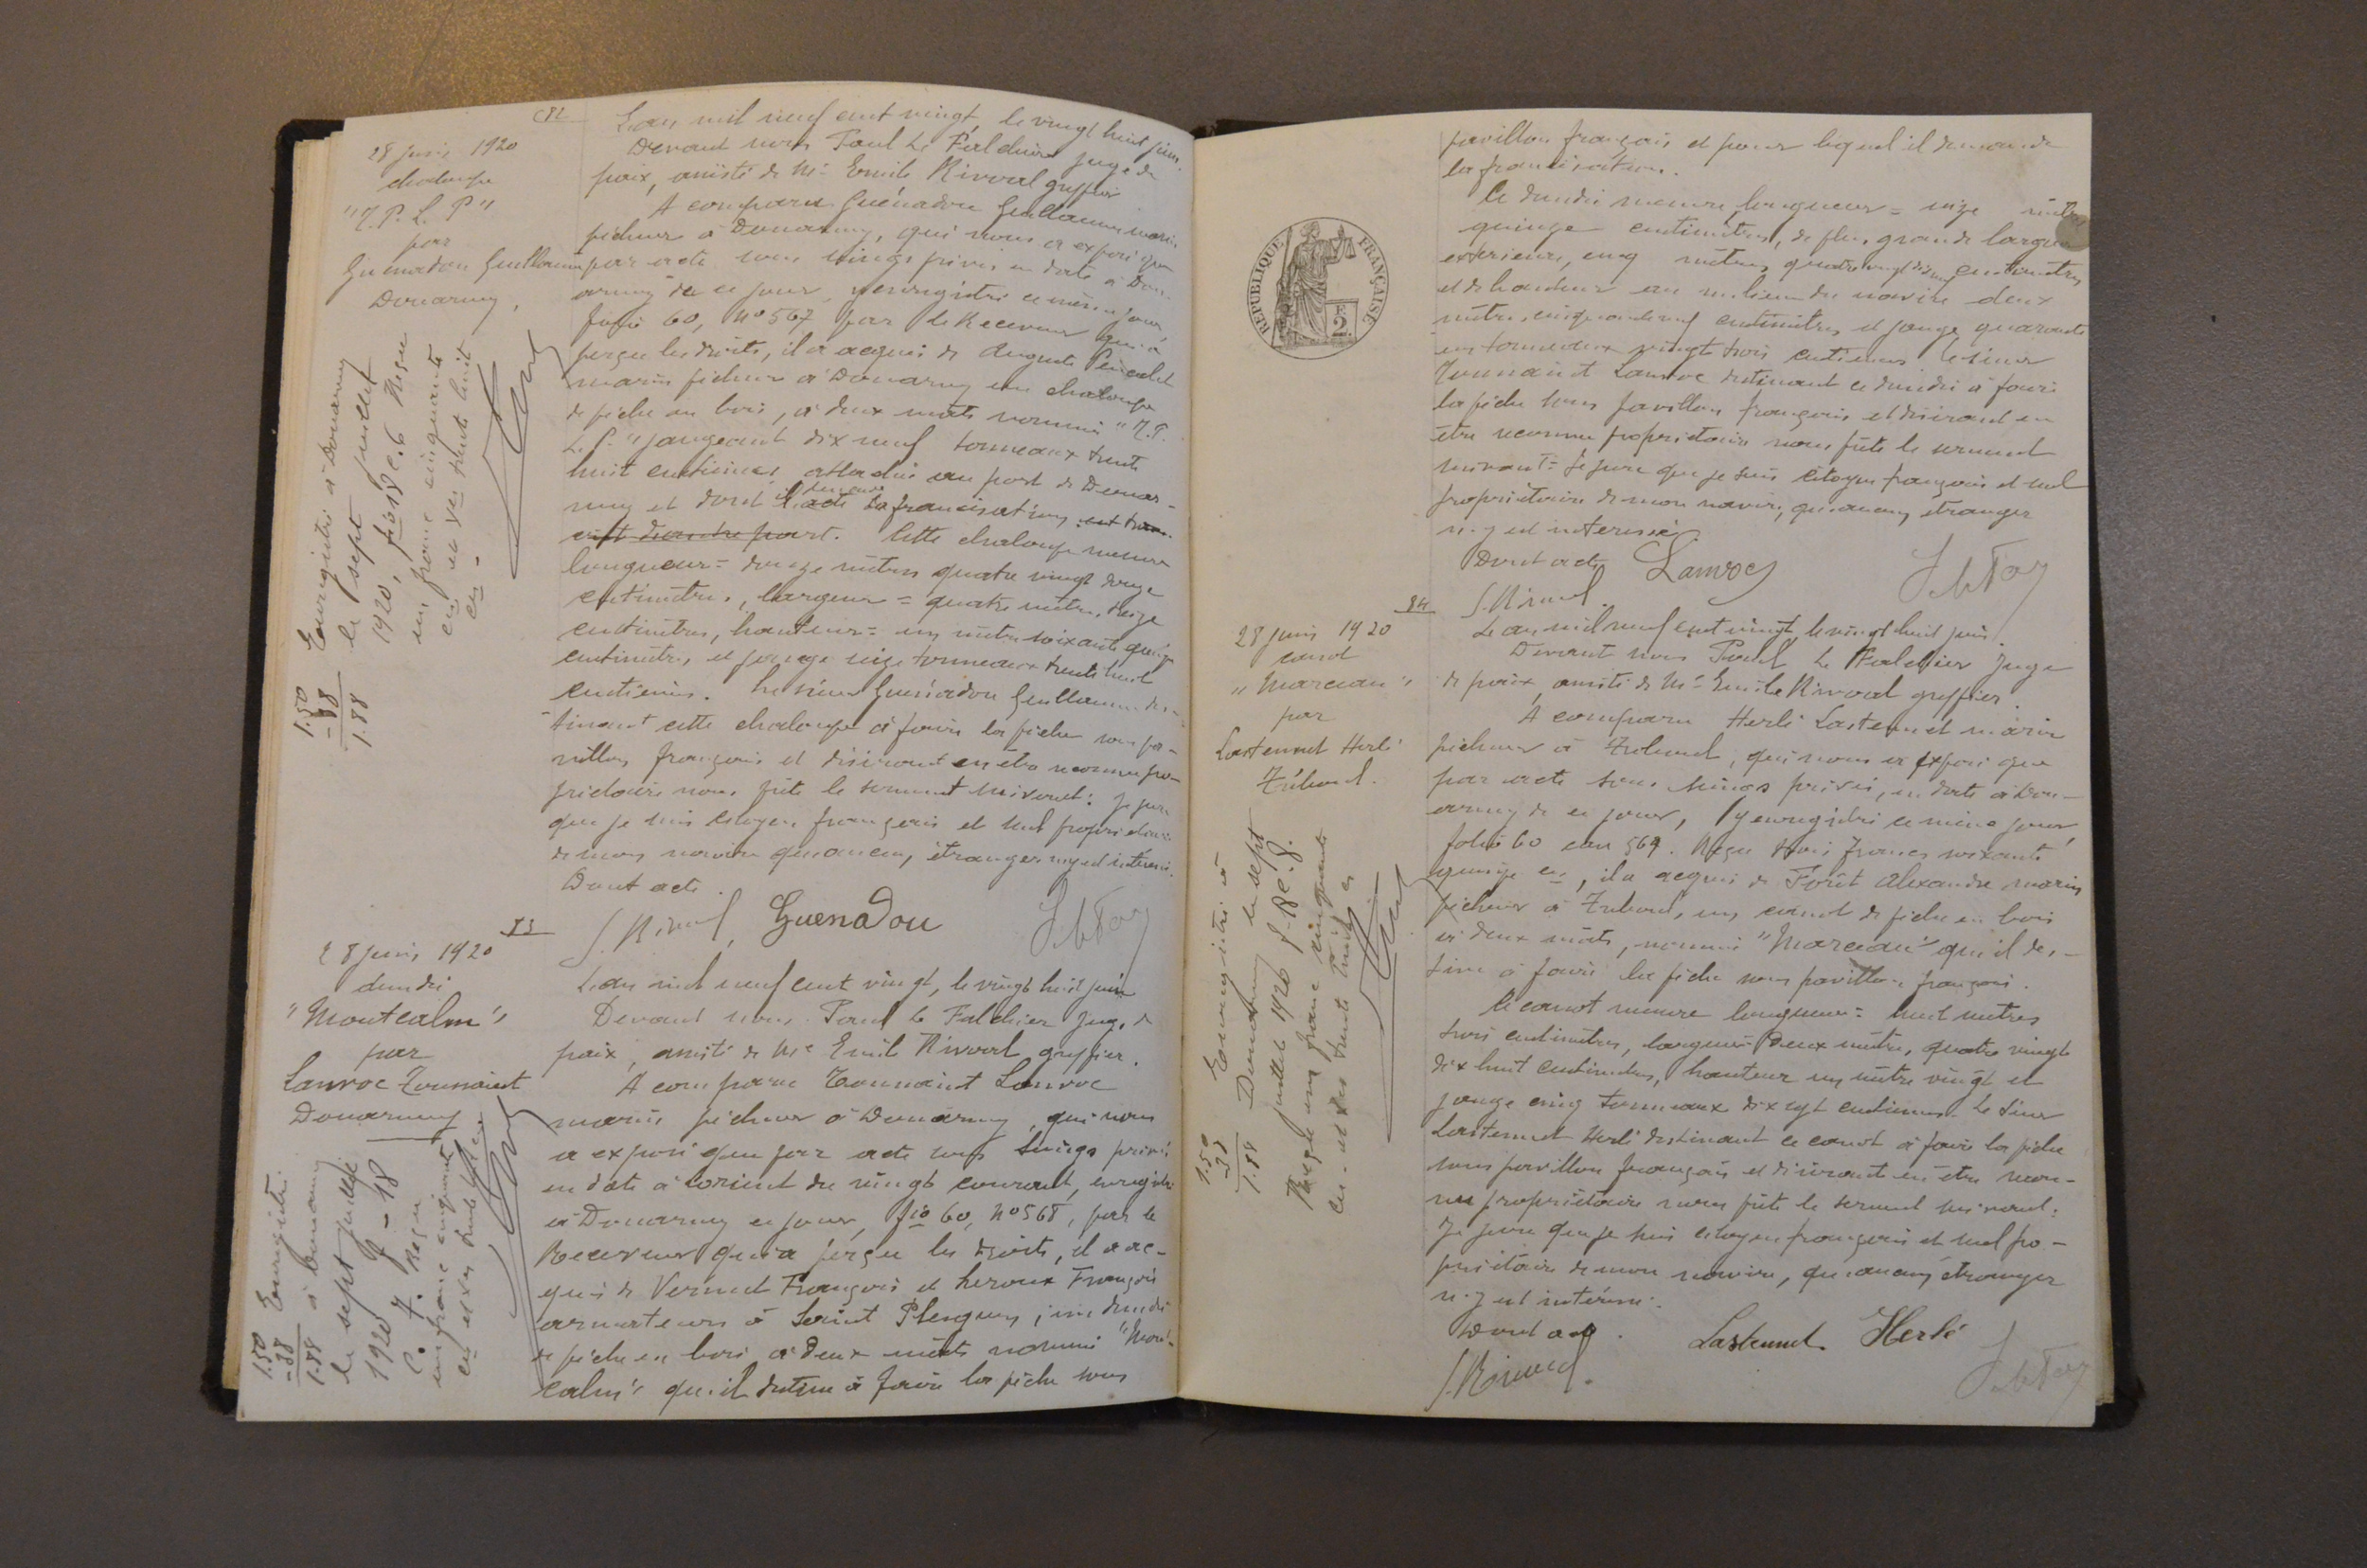 82
28 juin 1920
chaloupe
"
par
Guénadou Guillaume
Douarnenez
L'an mil neuf cent vingt, le vingt huit juin.
Devant nous Paul Le Falchier juge de
paix, assisté de Me Emile Rivoal greffier
A comparu Guénadou Guillaume marin
pêcheur à Douarnenez, qui nous a exposé que
par acte sous seings privés en date à Douar-
nenez de ce jour, y enregistré ce même jour,
folio 60, No 567 par le Receveur qui a
perçu les droits, il a acquis de Auguste
marin pêcheur à Douarnenez une chaloupe
de pêche en bois, à deux mâts nommée
L. P." jaugeant dix neuf tonneaux trente
huit centièmes, attachée au port de Douar-
nenez et dont il demande la francisation
d'autre part. Cette chaloupe mesure
longueur = douze mètres quatre vingt douze
centimètres, largeur = quatre mètres, seize
centimètres, hauteur = un mètre soixante quinze
centimètres, et jauge seize tonneaux trente huit
centièmes. Le sieur Guénadou Guillaume des-
tinant cette chaloupe à faire la pêche sous pa-
villon français et désirant en être reconnu pro-
priétaire nous prête le serment suivant: Je jure
que je suis citoyen français et seul propriétaire
de mon navire qu'aucun étranger n'y est intéressé.
Dont acte.
E. Rivoal Guenadou
Enregistré à Douarnenez
le sept juillet
1920, fo 18 c. 6 Reçu
un franc cinquante
ces et xes trente huit
ces -
1.50
-38
1.88
83
28 juin 1920
dundée
"Montcalm"
par
Lanvoc Toussaint
Douarnenez
L'an mil neuf cent vingt, le vingt huit juin
Devant nous Paul Le Falchier Juge de
paix, assisté de Me Emile Rivoal greffier.
A comparu Toussaint Lanvoc
marin pêcheur à Douarnenez, qui nous
a exposé que par acte sous seings privés
en date à Lorient du vingt courant, enregistré
à Douarnenez ce jour, fio 60, No 568, par le
Receveur qui a perçu les droits, il a ac-
quis de François et François
armateurs à, un dundée
de pêche en bois à deux mâts nommé "Mont-
calm" qu'il destine à faire la pêche sous
Enregistré
à Douarnenez
le sept juillet
1920 f - 18
c. 7. Reçu
un franc cinquante
ces et xes trente huit ces
1.50
-38
1.88
pavillon français et pour lequel il demande
la francisation.
Ce dundée mesure, longueur = seize mètres
quinze centimètres, de plus grande largeur
extérieure, cinq mètres quatre vingt centimètres
et de hauteur au milieu du navire deux
mètres, cinquante neuf centimètres et jauge quarante
tonneaux vingt trois centièmes le sieur
Toussaint Lanvoc destinant ce dundée à faire
la pêche sous pavillon français et désirant en
être reconnu propriétaire nous prête le serment
suivant: Je jure que je suis citoyen français et seul
propriétaire de mon navire, qu'aucun étranger
n'y est intéressé.
Dont acte. Lanvoc
E. Rivoal
REPUBLIQUE FRANÇAISE
F
2
84
28 juin 1920
canot
"Marceau"
par
Lastennet Herlé
Tréboul.
L'an mil neuf cent vingt, le vingt huit juin.
Devant nous Paul Le Falchier Juge
de paix, assisté de Me Emile Rivoal greffier.
A comparu Herlé Lastennet marin
pêcheur à Tréboul, qui nous a exposé que
par acte sous seings privés, en date à Dou-
arnenez de ce jour, y enregistré ce même jour,
folio 60 case 569. Reçu trois francs soixante
quinze ces, il a acquis de Forêt Alexandre marin
pêcheur à Tréboul, un canot de pêche en bois
à deux mâts, nommé "Marceau" qu'il des-
tine à faire la pêche sous pavillon français.
Ce canot mesure longueur = huit mètres
trois centimètres, largeur Deux mètres, quatre vingt
dix huit centimètres, hauteur un mètre vingt et
jauge cinq tonneaux dix sept centièmes. Le sieur
Lastennet Herlé destinant ce canot à faire la pêche
sous pavillon français et désirant en être recon-
nu propriétaire nous prête le serment suivant:
Je jure que je suis citoyen français et seul pro-
priétaire de mon navire, qu'aucun étranger
n'y est intéressé.
Dont acte. Lastennet Herlé
E. Rivoal.
Enregistré à
Douarnenez le sept
juillet 1920 f. 18 c. 8.
Reçu un franc cinquante
ces et xes trente huit ces
1.50
-38
1.88